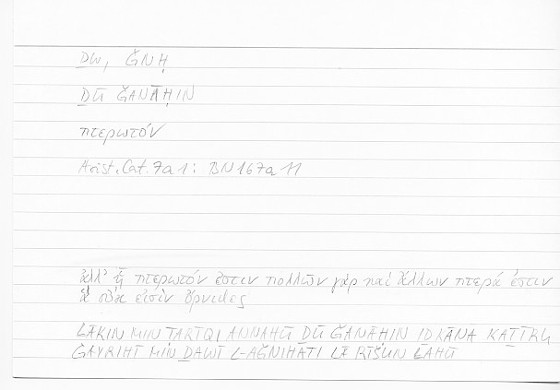 ḎW, ǦNḤ
ḎŪ ǦANĀḤIN
πτερωτόν
Arist. Cat. 7a1: BN 167a11
ἀλλ' ᾗ πτερωτόν ἐστιν πολλῶν γὰρ καὶ ἄλλων πτερά ἐστιν
ἃ οὐκ εἰσὶν ὄρνιθες
LĀKIN MIN ṬARĪQI ANNAHŪ ḎŪ ǦANĀḤIN IḎ KĀNA KAṮĪRU
ǦAYRIHĪ MIN ḎAWĪ L-AǦNIḤATI LĀ RĪŠUN LAHŪ